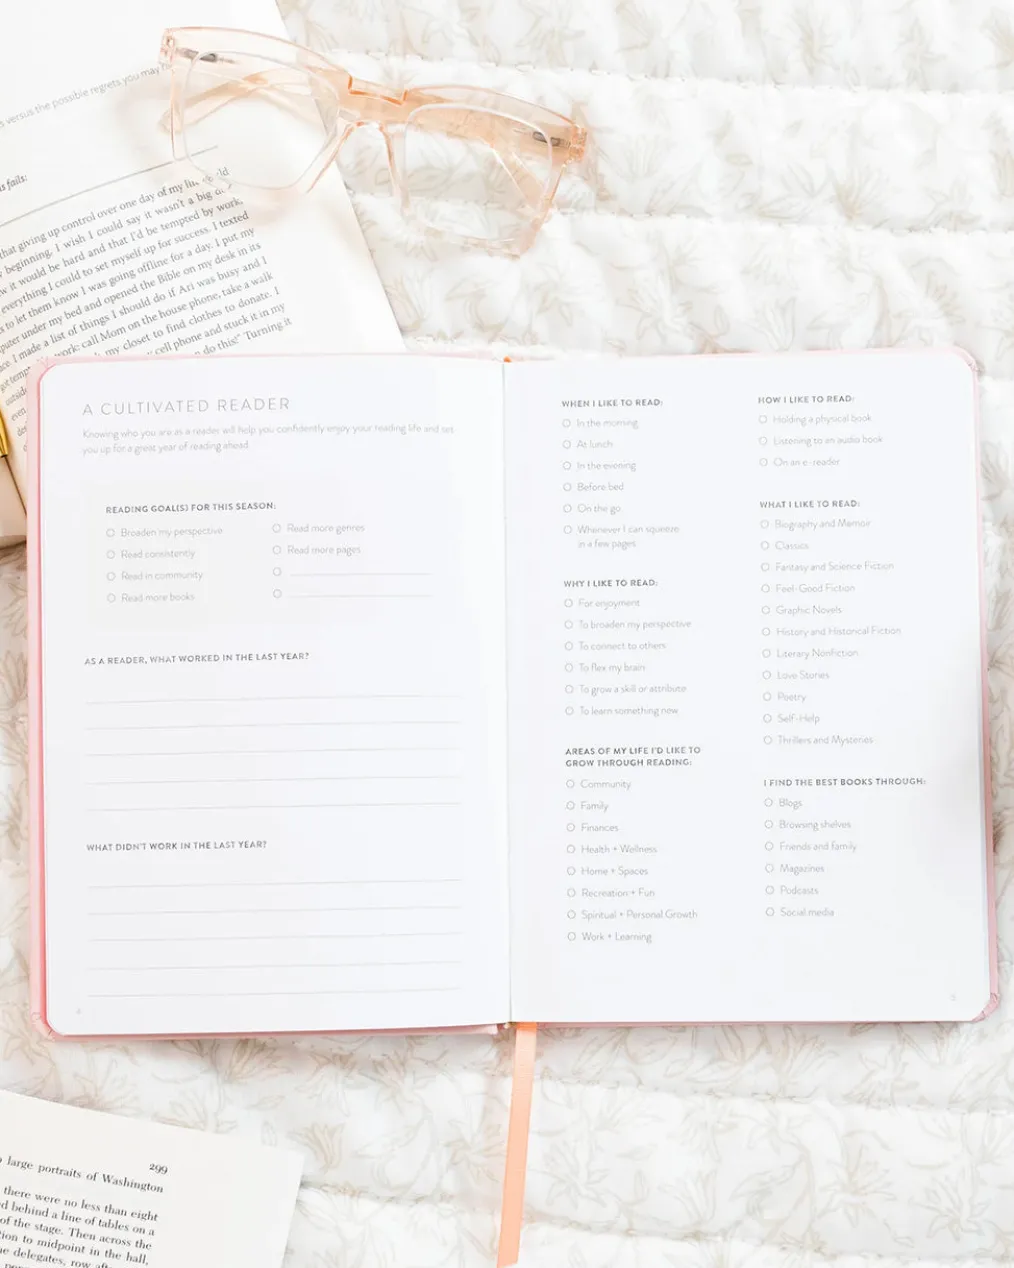 s versus the possible regrets you may
s fails:
that giving up control over one day of my
beginning. I wish I could say it wasn't a big
w it would be hard and that I'd be tempted by work,
everything I could to set myself up for success. I texted
s to let them know I was going offline for a day. I put my
puter under my bed and opened the Bible on my desk in its
ce. I made a list of things I should do if Ari was busy and I
work: call Mom on the house phone, take a walk
my closet to find clothes to donate. I
cell phone and stuck it in my
do this!" Turning it
A CULTIVATED READER
Knowing who you are as a reader will help you confidently enjoy your reading life and set
you up for a great year of reading ahead.
READING GOAL(S) FOR THIS SEASON:
Broaden my perspective
Read consistently
Read in community
Read more books
Read more genres
Read more pages
AS A READER, WHAT WORKED IN THE LAST YEAR?
WHAT DIDN'T WORK IN THE LAST YEAR?
WHEN I LIKE TO READ:
In the morning
At lunch
In the evening
Before bed
On the go
Whenever I can squeeze
in a few pages
WHY I LIKE TO READ:
For enjoyment
To broaden my perspective
To connect to others
To flex my brain
To grow a skill or attribute
To learn something new
AREAS OF MY LIFE I'D LIKE TO
GROW THROUGH READING:
Community
Family
Finances
Health + Wellness
Home + Spaces
Recreation + Fun
Spiritual + Personal Growth
Work + Learning
HOW I LIKE TO READ:
Holding a physical book
Listening to an audio book
On an e-reader
WHAT I LIKE TO READ:
Biography and Memoir
Classics
Fantasy and Science Fiction
Feel-Good Fiction
Graphic Novels
History and Historical Fiction
Literary Nonfiction
Love Stories
Poetry
Self-Help
Thrillers and Mysteries
I FIND THE BEST BOOKS THROUGH:
Blogs
Browsing shelves
Friends and family
Magazines
Podcasts
Social media
299
large portraits of Washington
there were no less than eight
d behind a line of tables on a
of the stage. Then across the
tion to midpoint in the hall,
e delegates, row